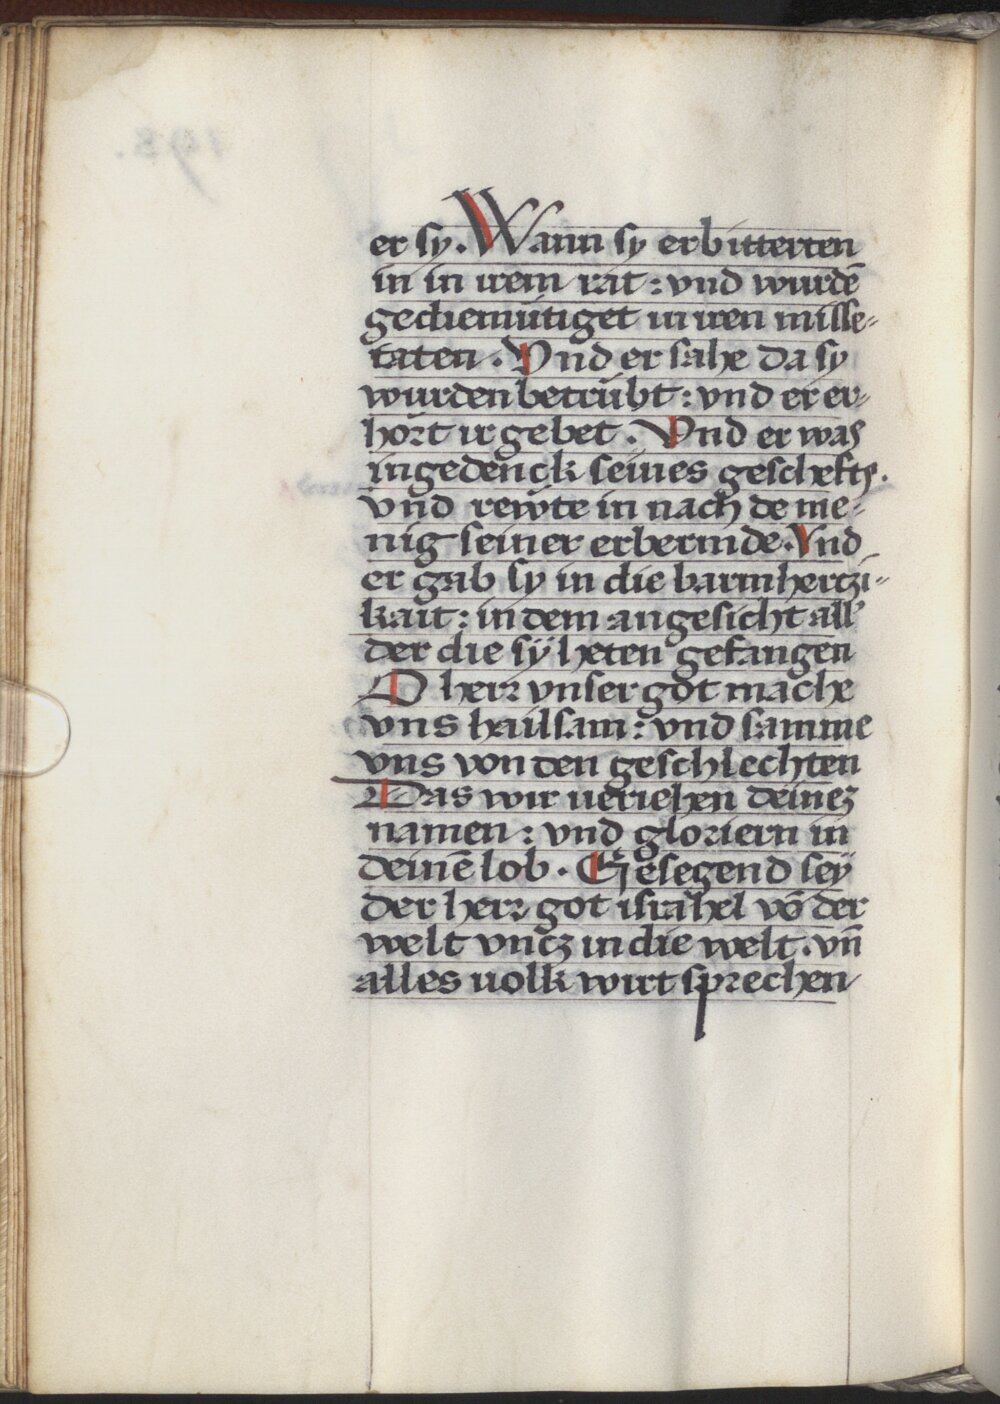 er sy. Wann sy erbitterten
in in irem rat: vnd wurdē
gediemütiget in iren misse-
taten. Vnd er sahe da sy
wurden betrübt: vnd er er-
hört ir gebet. Vnd er was
ingedenck seines geschefts.
vnd rewte in nach de me-
nig seiner erbermde. Vnd
er gab sy in die barmhertzi-
kait: in dem angesicht all'
der die sÿ heten gefangen
O herr vnser got mache
vns hailsam: vnd samme
vns von den geschlechten
Das wir ueriehen deinez
namen: vnd gloriern in
deinē lob. Gesegend seÿ
der herr got israhel vō der
welt vncz in die welt. vn̄
alles uolk wirt sprechen